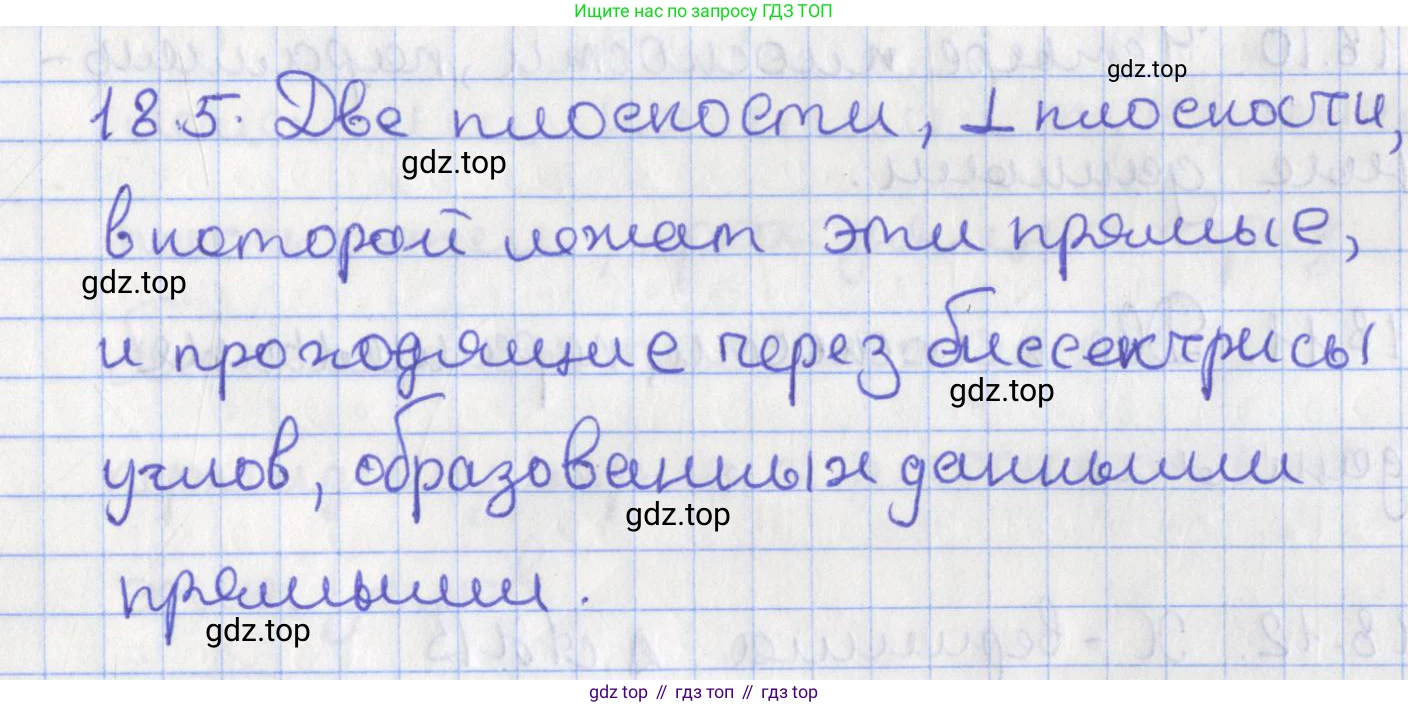 Ищите нас по запросу ГДЗ ТОП
gdz.top
18.5. Две плоскости, ⊥ плоскости,
gdz.top
в которой лежат эти прямые,
gdz.top
и проходящие через биссектрисы
gdz.top
углов, образованных данными
gdz.top
прямыми.
gdz.top
gdz top // гдз топ // гдз top